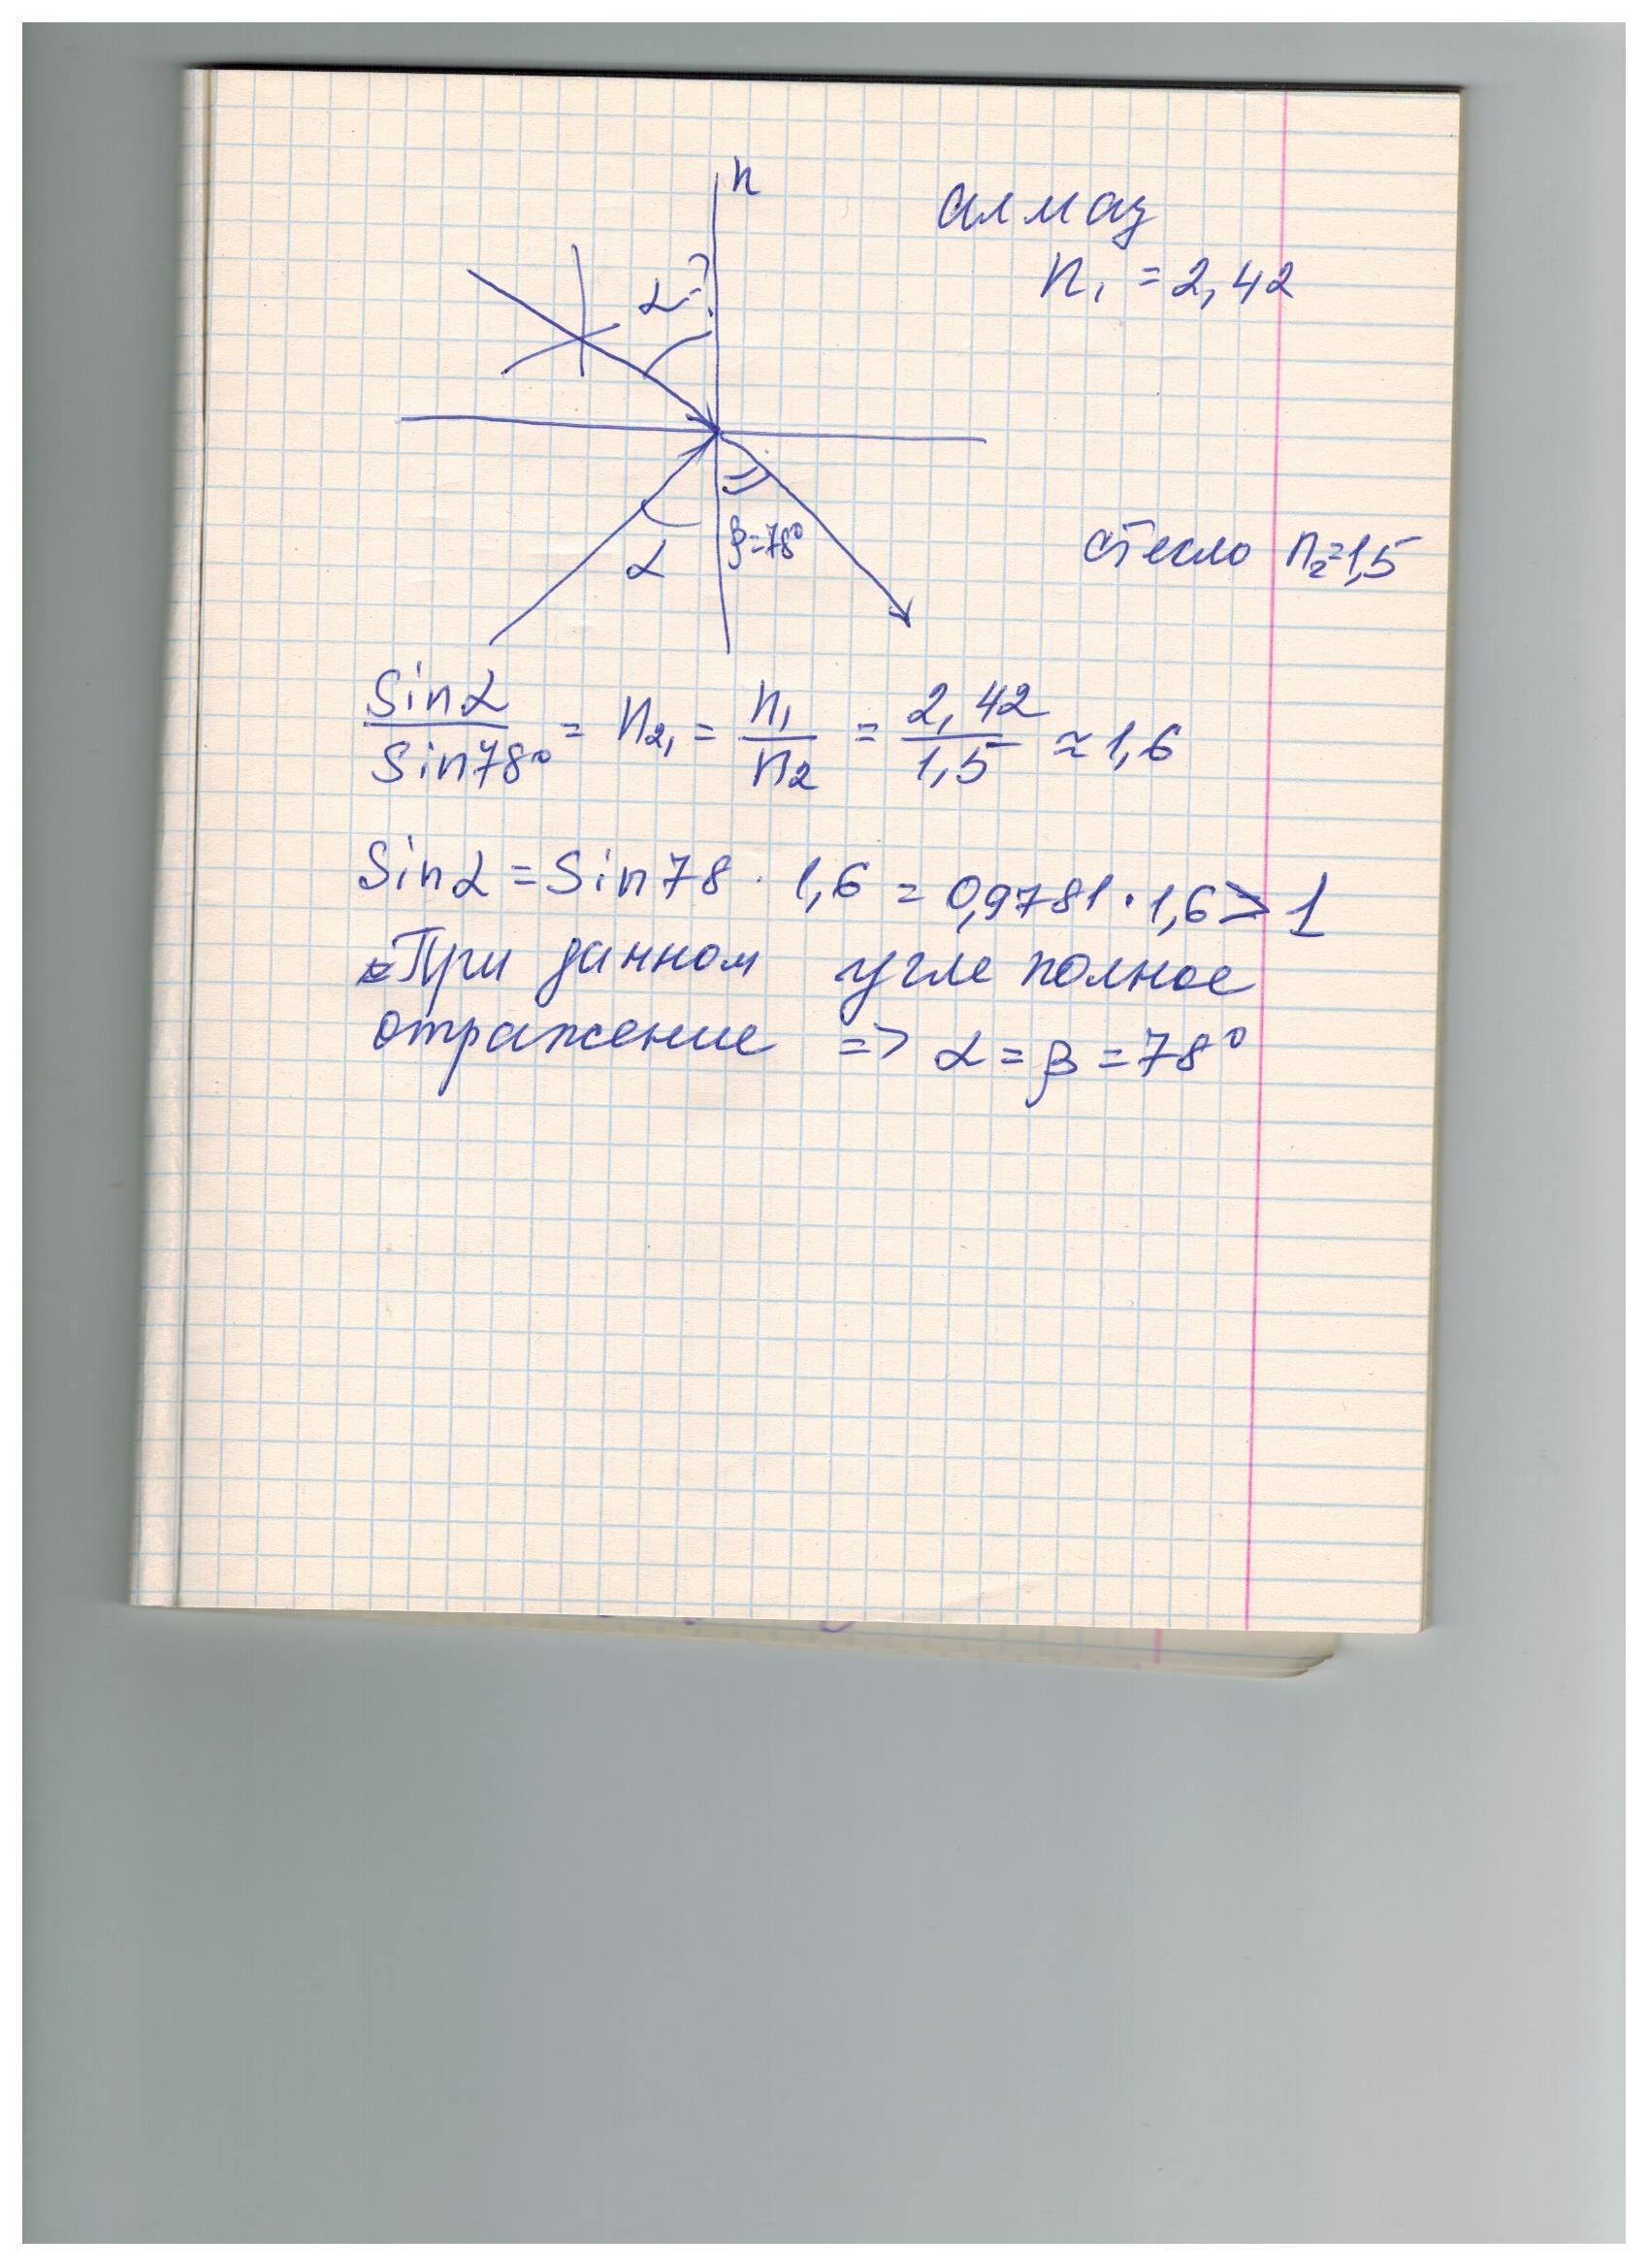 n
алмаз
α-?
n₁ = 2,42
α
β=78°
стекло n₂=1,5
Sinα/Sin78° = n₂₁ = n₁/n₂ = 2,42/1,5 ≈ 1,6
Sinα = Sin78 · 1,6 = 0,9781 · 1,6 > 1
При данном угле полное
отражение => α = β = 78°